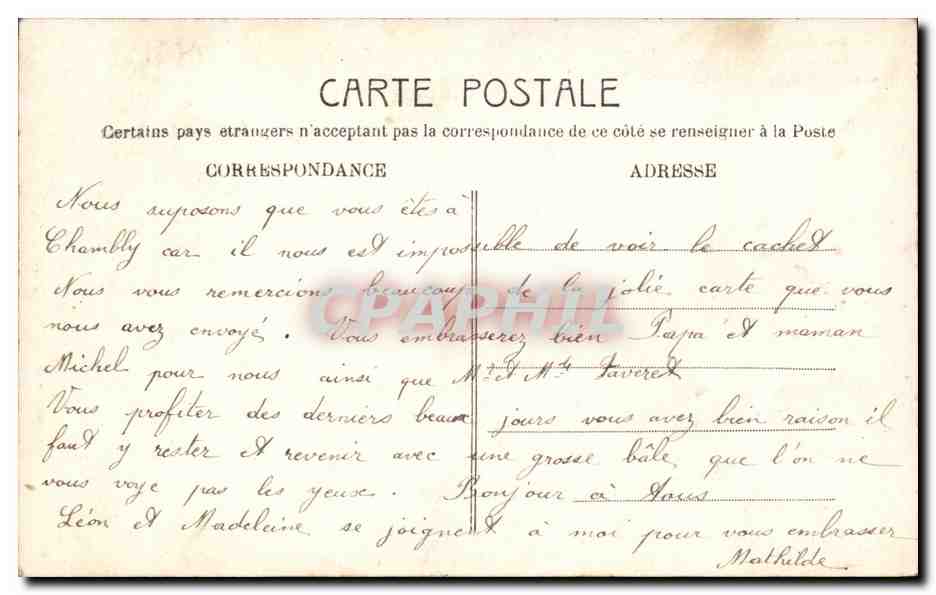 CARTE POSTALE
Certains pays etrangers n'acceptant pas la correspondance de ce côté se renseigner à la Poste
CORRESPONDANCE ADRESSE
Nous suposons que vous êtes à
Chambly car il nous est impossible de voir le cachet
Nous vous remercions beaucoup de la jolie carte que vous
nous avez envoyé. Vous embrasserez bien Papa et maman
Michel pour nous ainsi que Mr et Mme Taveret
Vous profiter des derniers beaux jours vous avez bien raison il
faut y rester et revenir avec une grosse bâle que l'on ne
vous voye pas les yeux. Bonjour à tous
Léon et Madeleine se joignent à moi pour vous embrasser
Mathilde
CPAPHIL